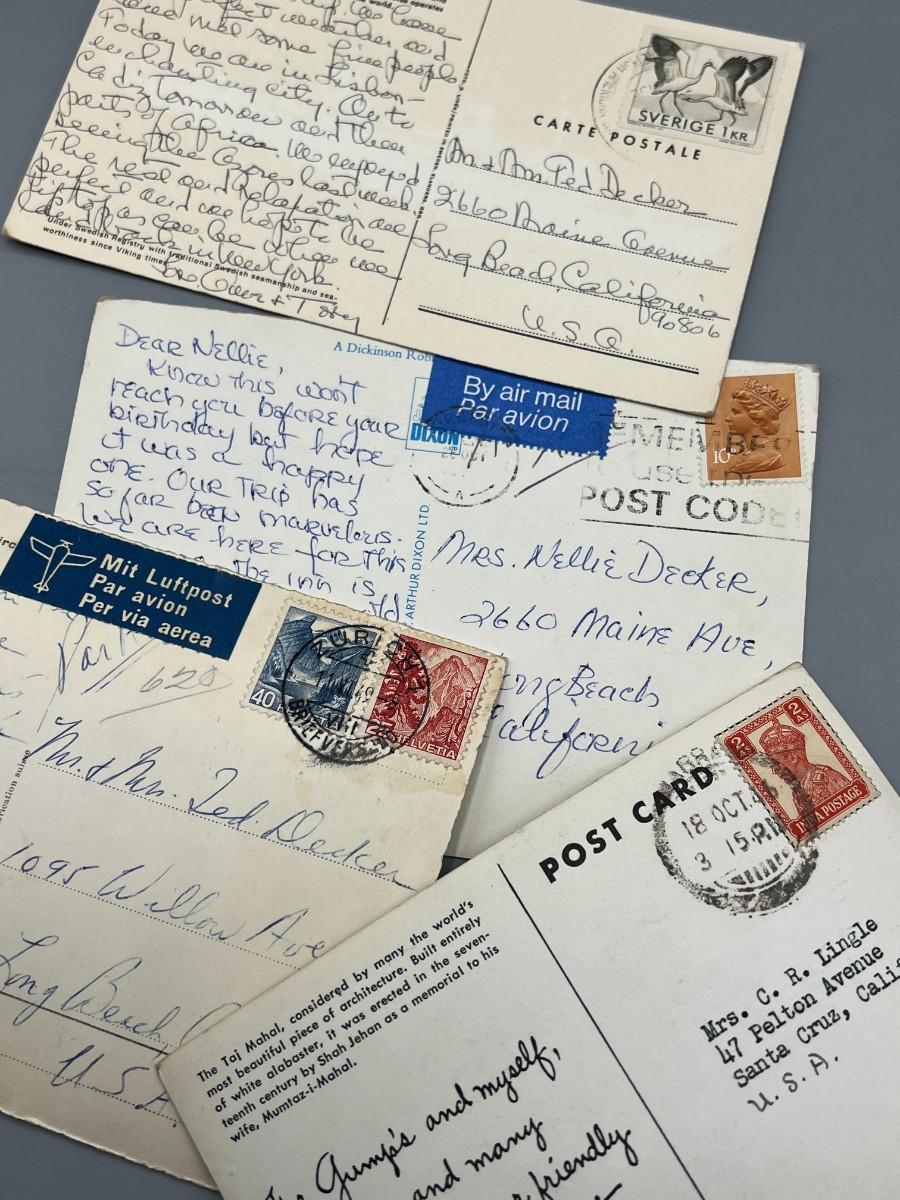 and met some fine people
Today we are in Lisbon-
enchanting city. On to
Cadiz tomorrow and then
parts of Africa. We enjoyed
seeing the Azores last week.
The rest and relaxation are
perfect and we hope to be
when we
land back in New York.
Love,
Under Swedish Registry with traditional Swedish seamanship and sea-
worthiness since Viking times.
SVERIGE 1KR
CARTE POSTALE
Mr + Mrs Ted Decker
2660 Maine Avenue
Long Beach, California
90806
U.S.A.
Dear Nellie,
Know this won't
reach you before your
birthday but hope
it was a happy
one. Our trip has
so far been marvelous.
We are here for this
the inn is
A Dickinson
DIXON
LTD
ARTHUR DIXON LTD.
By air mail
Par avion
10
REMEMBER
USE
POST CODE
Mrs. Nellie Decker,
2660 Maine Ave,
Long Beach
California
Mit Luftpost
Par avion
Per via aerea
620
40
ZÜRICH
HELVETIA
Mr. + Mrs. Ted Decker
1095 Willow Ave
Long Beach
U.S.A.
POST CARD
18 OCT.
3 15 PM
2 AS
2 AS
INDIA POSTAGE
The Taj Mahal, considered by many the world's
most beautiful piece of architecture. Built entirely
of white alabaster, it was erected in the seven-
teenth century by Shah Jehan as a memorial to his
wife, Mumtaz-i-Mahal.
Gump's and myself,
and many
friendly
Mrs. C. R. Lingle
47 Pelton Avenue
Santa Cruz, Calif
U. S. A.